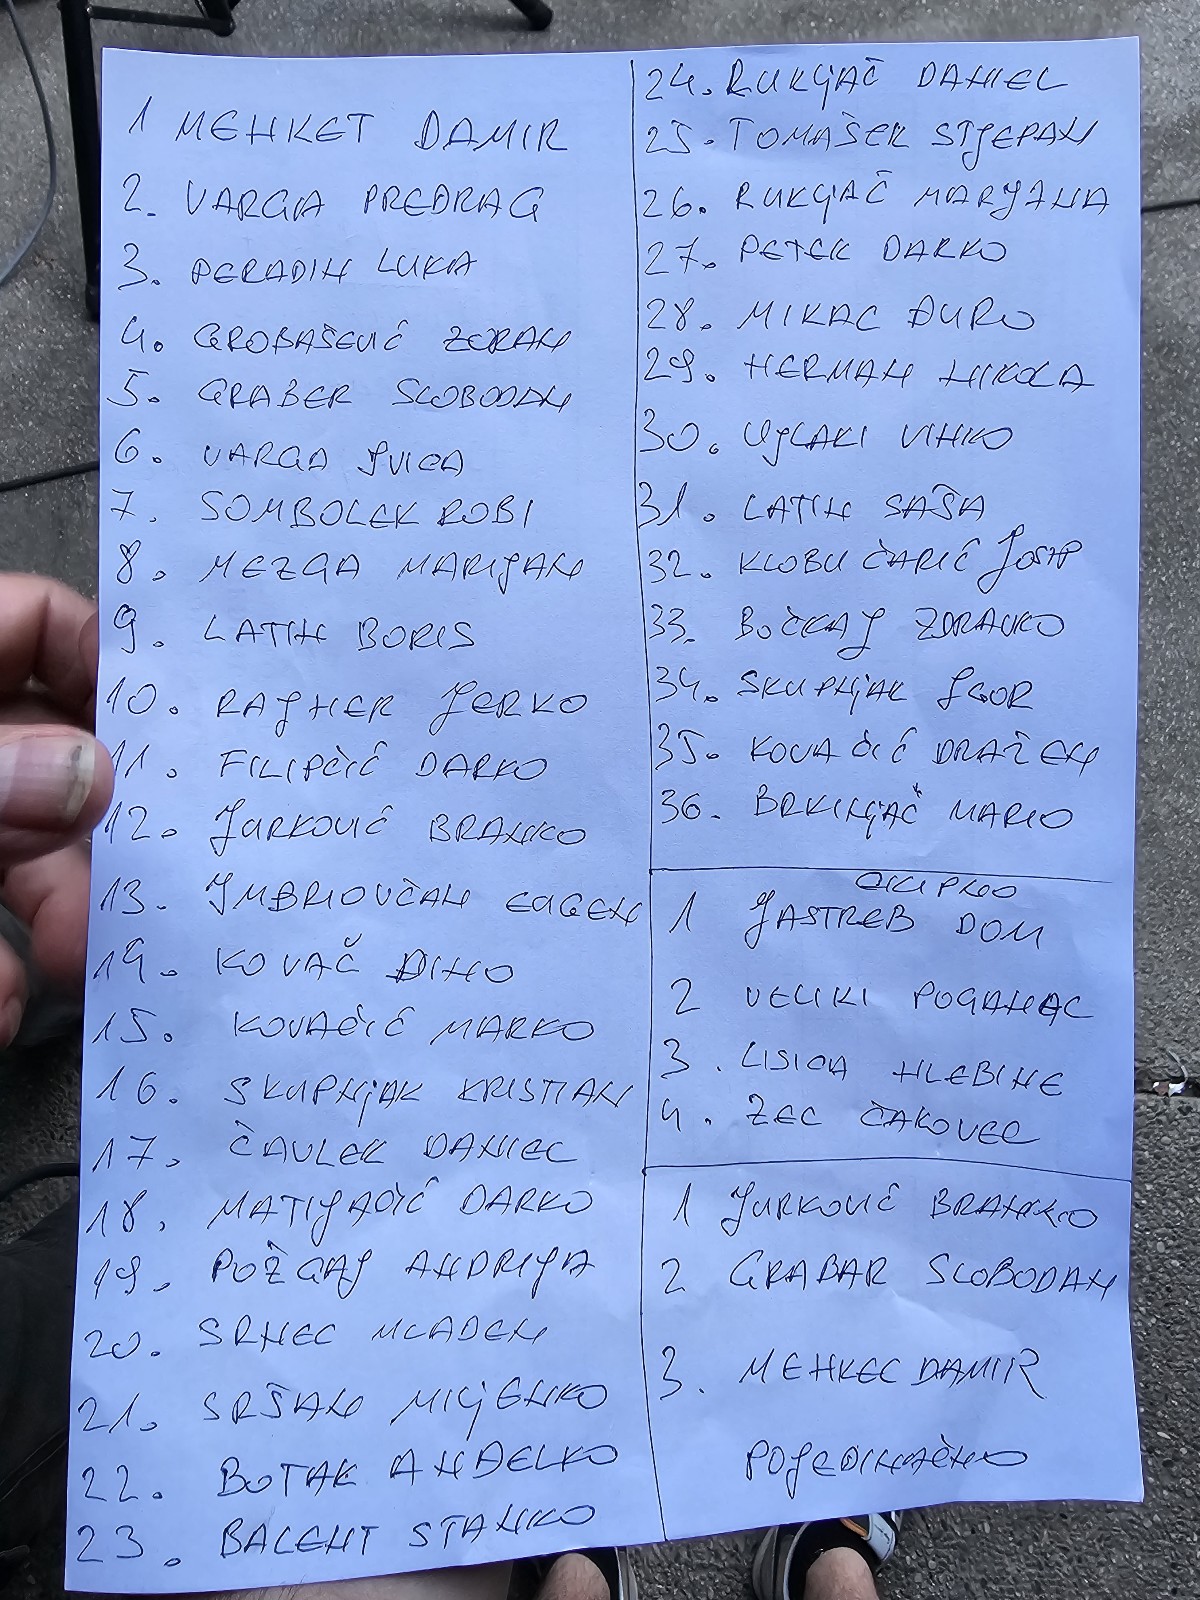 1 MEHKET DAMIR
2. VARGA PREDRAG
3. PERADIN LUKA
4. GROBAŠEVIĆ ZORAN
5. GRABER SLOBODAN
6. VARGA IVICA
7. SOMBOLEK ROBI
8. MEZGA MARIJAN
9. LATIN BORIS
10. RAJHER JERKO
11. FILIPČIĆ DARKO
12. JURKOVIĆ BRANKO
13. IMBRIOVČAN EUGEN
14. KOVAČ DINO
15. KOVAČIĆ MARKO
16. SKUPNJAK KRISTIAN
17. ČAVLEK DANIEL
18. MATIJAČIĆ DARKO
19. POŽGAJ ANDRIJA
20. SRNEC MLADEN
21. SRŠAN MILJENKO
22. BOTAK ANĐELKO
23. BALENT STANKO
24. RUKLJAČ DANIEL
25. TOMAŠEK STJEPAN
26. RUKLJAČ MARIJANA
27. PETEK DARKO
28. MIKAC ĐURO
29. HERMAN NIKOLA
30. UJLAKI VINKO
31. LATIN SAŠA
32. KLOBUČARIĆ JOSIP
33. BOČKAJ ZDRAVKO
34. SKUPNJAK IGOR
35. KOVAČIĆ DRAŽEN
36. BRKINJAČ MARIO
EKIPNO
1 JASTREB DOM
2 VELIKI POGANAC
3. LISICA HLEBINE
4. ZEC ČAKOVEC
1 JURKOVIĆ BRANKO
2 GRABAR SLOBODAN
3. MEHKEC DAMIR
POJEDINAČNO